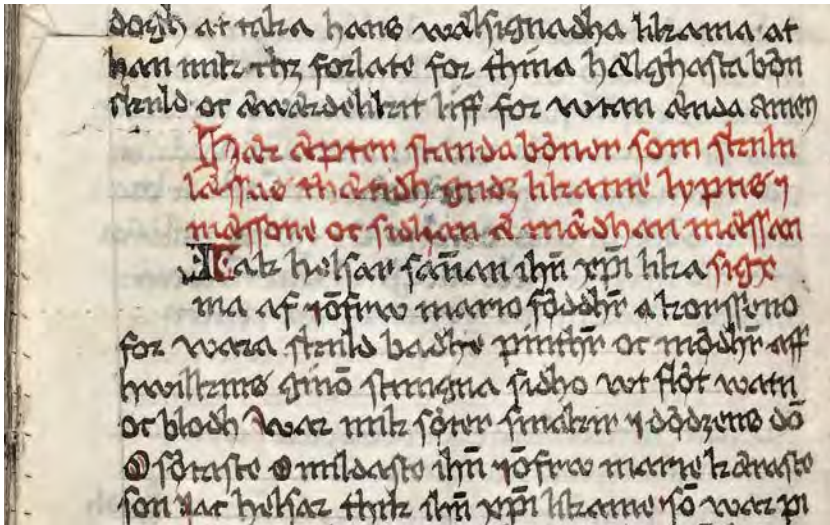 dogh at taka hans wälsignadha likama at
han mik thz forlate for thina hälghasta bön
skuld oc äwärdelikit liff for wtan ända amen
Här äpter standa böner som skulu
läsas thändh gudz likame lyptis i
mässone oc sidhan ä mädhan mässan
Jak helsar sañan ihū xp̄i lika sigx
ma af iōfrw mario föddhr̄ a korsseno
for wara skuld badhe pinthr̄ oc mödhr̄ aff
hwilkins ginō stungna sidho wt flöt watn
oc blodh war mik söter smakir i dödzens dō
O sötaste O mildaste ihū iōfrw marie käraste
son jac helsar thik ihū xp̄i likame sō war pi